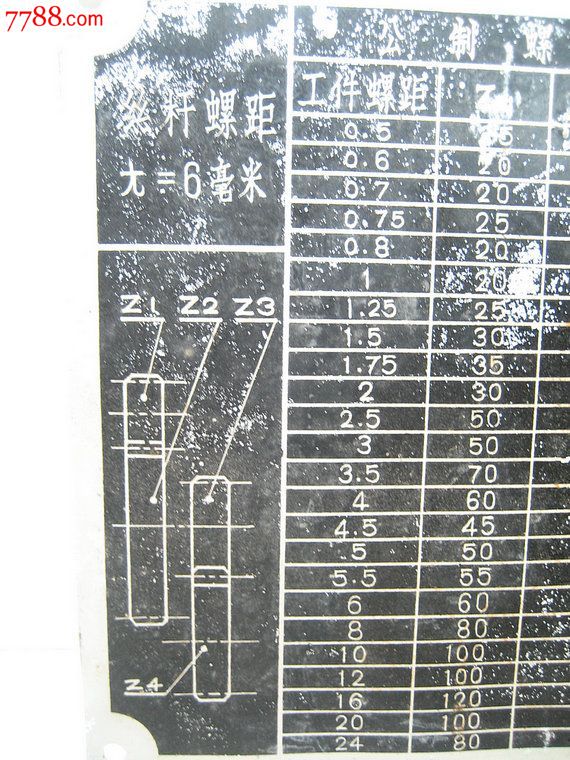 7788.com
公 制 螺
丝杆螺距
t=6毫米
工件螺距 Z1
0.5 25
0.6 20
0.7 20
0.75 25
0.8 20
1 20
1.25 25
1.5 30
1.75 35
2 30
2.5 50
3 50
3.5 70
4 60
4.5 45
5 50
5.5 55
6 60
8 80
10 100
12 100
16 120
20 100
24 80
Z1 Z2 Z3
Z4